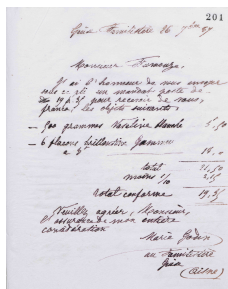 201
Guise Familistère 26 7bre 87
Monsieur Fumouze,
J'ai l'honneur de vous envoyer
sous ce pli un mandat poste de
19 f. 35 pour recevoir de vous,
franco, les objets suivants
500 grammes Vaseline blanche 5.50
6 flacons brillantine
à 3f 16.
total 21,50
moins 1/10 2,15
total conforme 19.35
Veuillez agréer, Monsieur,
l'assurance de mon entière
considération
Marie Godin
au Familistère
Guise
(Aisne)